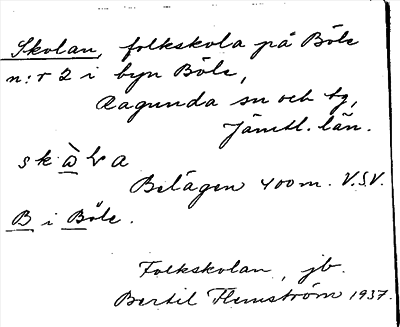 Skolan, folkskola på Böle
n:r 2 i byn Böle,
Ragunda sn och tg,
Jämtl. län.
skὰla
Belägen 400 m. V.S.V.
B i Böle.
Folkskolan, jb.
Bertil Flemström 1937.